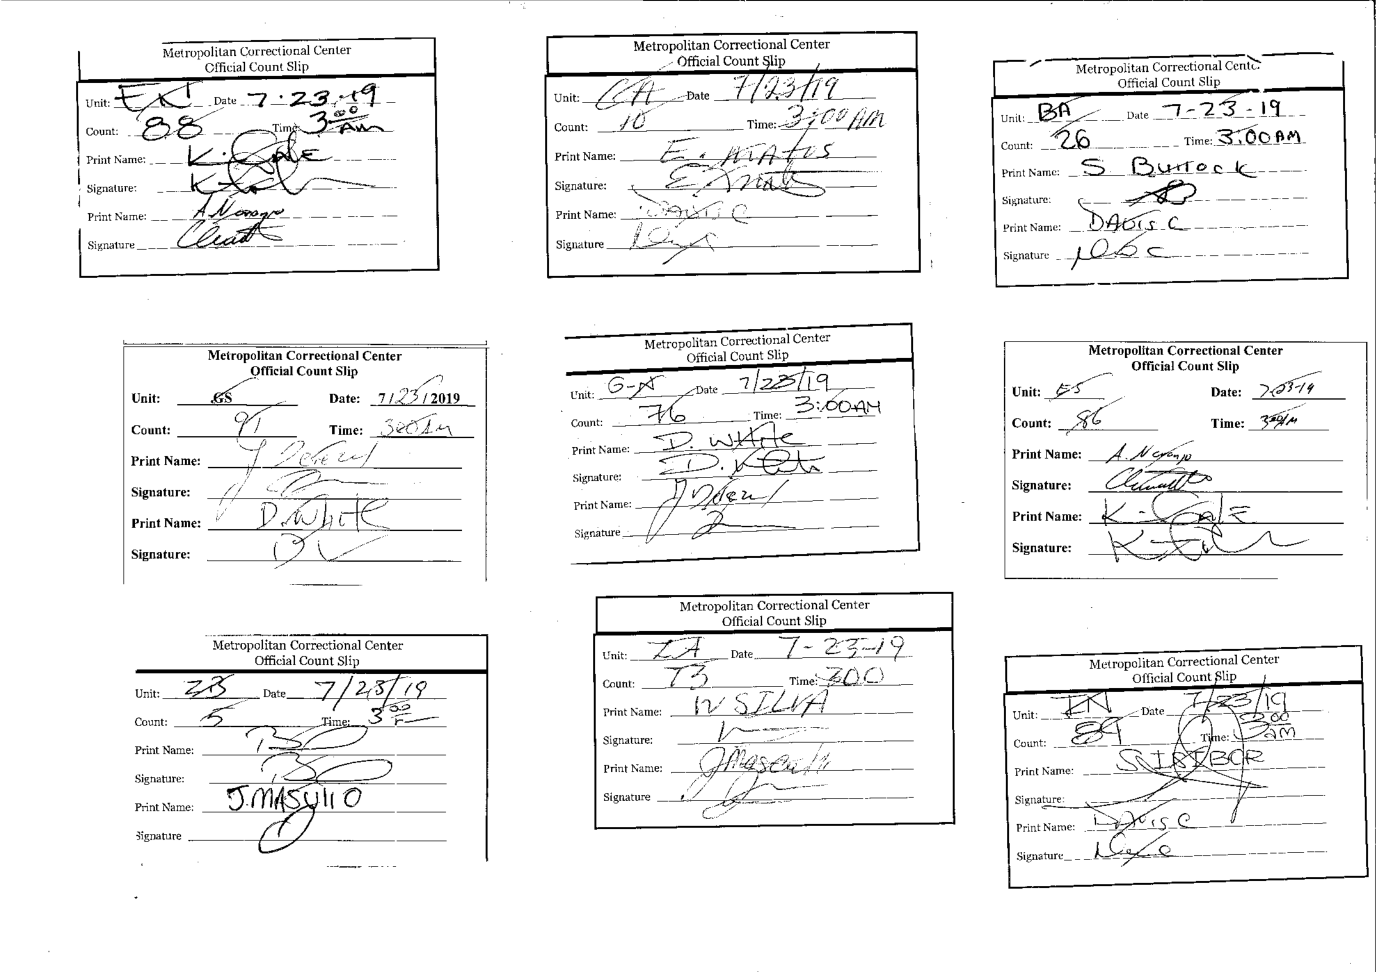 Metropolitan Correctional Center
Official Count Slip
Unit: Date 7-23-19
Count: 88 Time: 3:00 AM
Print Name: K.
Signature:
Print Name: A.
Signature
Metropolitan Correctional Center
Official Count Slip
Unit: CA Date 7/23/19
Count: 10 Time: 3:00 AM
Print Name: E. MATOS
Signature:
Print Name: DAVIS C
Signature
Metropolitan Correctional Cente
Official Count Slip
Unit: BA Date 7-23-19
Count: 26 Time: 3:00 AM
Print Name: S
Signature:
Print Name: DAVIS C
Signature
Metropolitan Correctional Center
Official Count Slip
Unit: GS Date: 7/23/2019
Count: 91 Time: 300AM
Print Name:
Signature:
Print Name: D. White
Signature:
Metropolitan Correctional Center
Official Count Slip
Unit: G-A Date 7/23/19
Count: 76 Time: 3:00AM
Print Name: D. White
Signature:
Print Name:
Signature
Metropolitan Correctional Center
Official Count Slip
Unit: ES Date: 7-23-19
Count: 86 Time: 3:00AM
Print Name: A.
Signature:
Print Name: K.
Signature:
Metropolitan Correctional Center
Official Count Slip
Unit: ZB Date 7/23/19
Count: 5 Time: 3:00
Print Name:
Signature:
Print Name: J.
Signature
Metropolitan Correctional Center
Official Count Slip
Unit: ZA Date 7-23-19
Count: 73 Time: 300
Print Name: W SILVA
Signature:
Print Name:
Signature
Metropolitan Correctional Center
Official Count Slip
Unit: Date 7/23/19
Count: 89 Time: 3:00 AM
Print Name:
Signature:
Print Name: DAVIS C
Signature